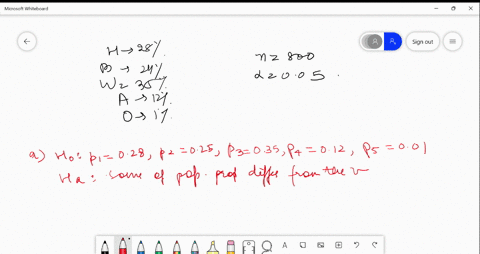 Microsoft Whiteboard
Sign out
H → 28%
B → 24%
W = 35%
A → 12%
O → 1%
n = 800
α = 0.05.
a) H₀: p₁ = 0.28, p₂ = 0.25, p₃ = 0.35, p₄ = 0.12, p₅ = 0.01
Ha: some of pop. prop differ from the v